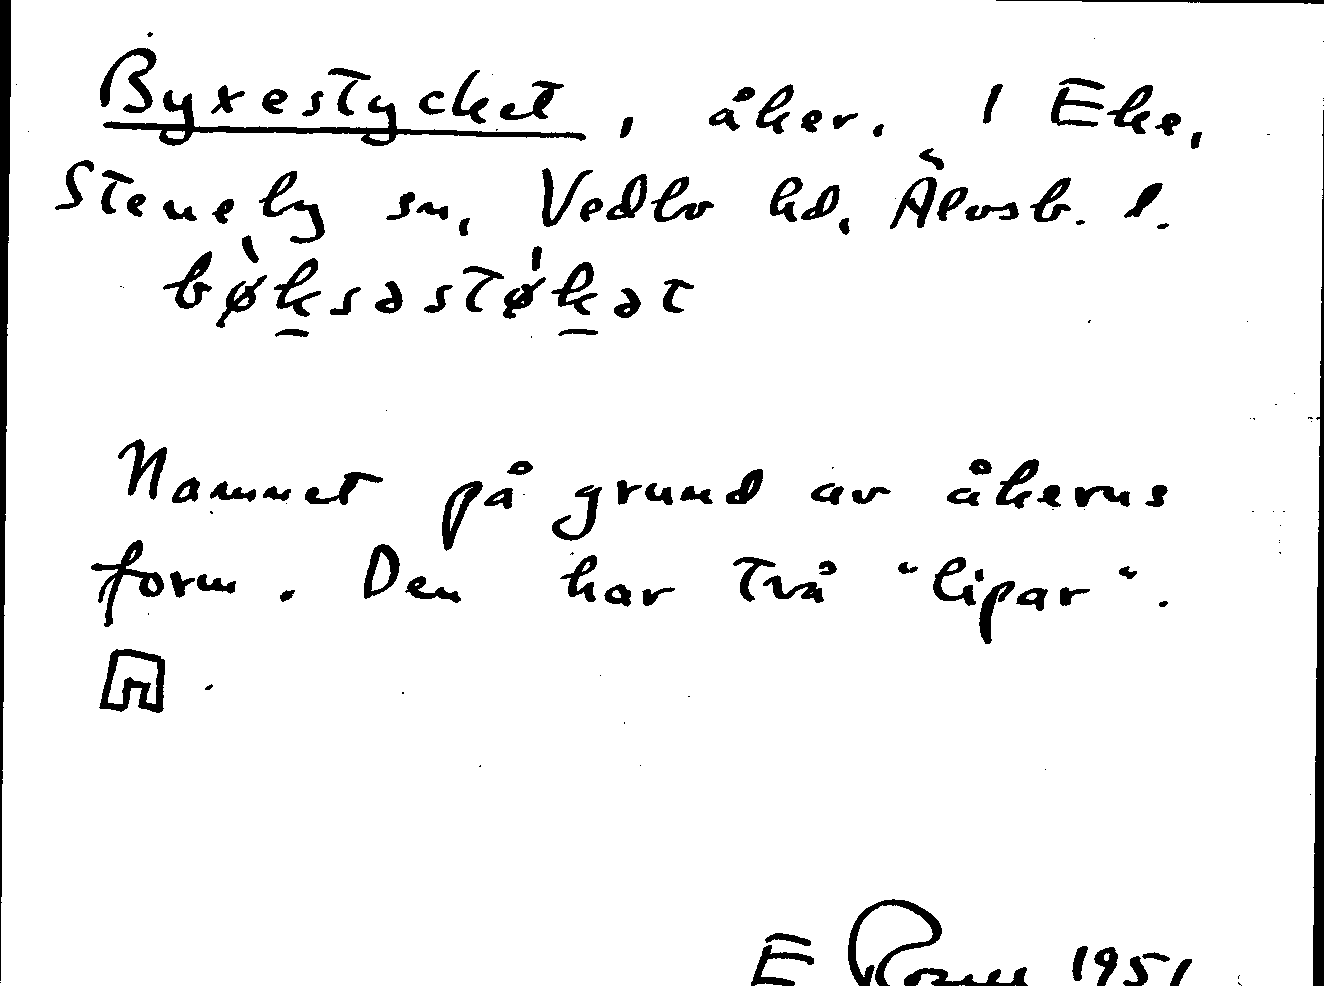 Byxestycket, åker. 1 Eke,
Steneby sn, Vedbo hd, Älvsb. l.
bø̀k̲səstø̍k̲ət
Namnet på grund av åkerns
form. Den har två "lipar".
E 1951